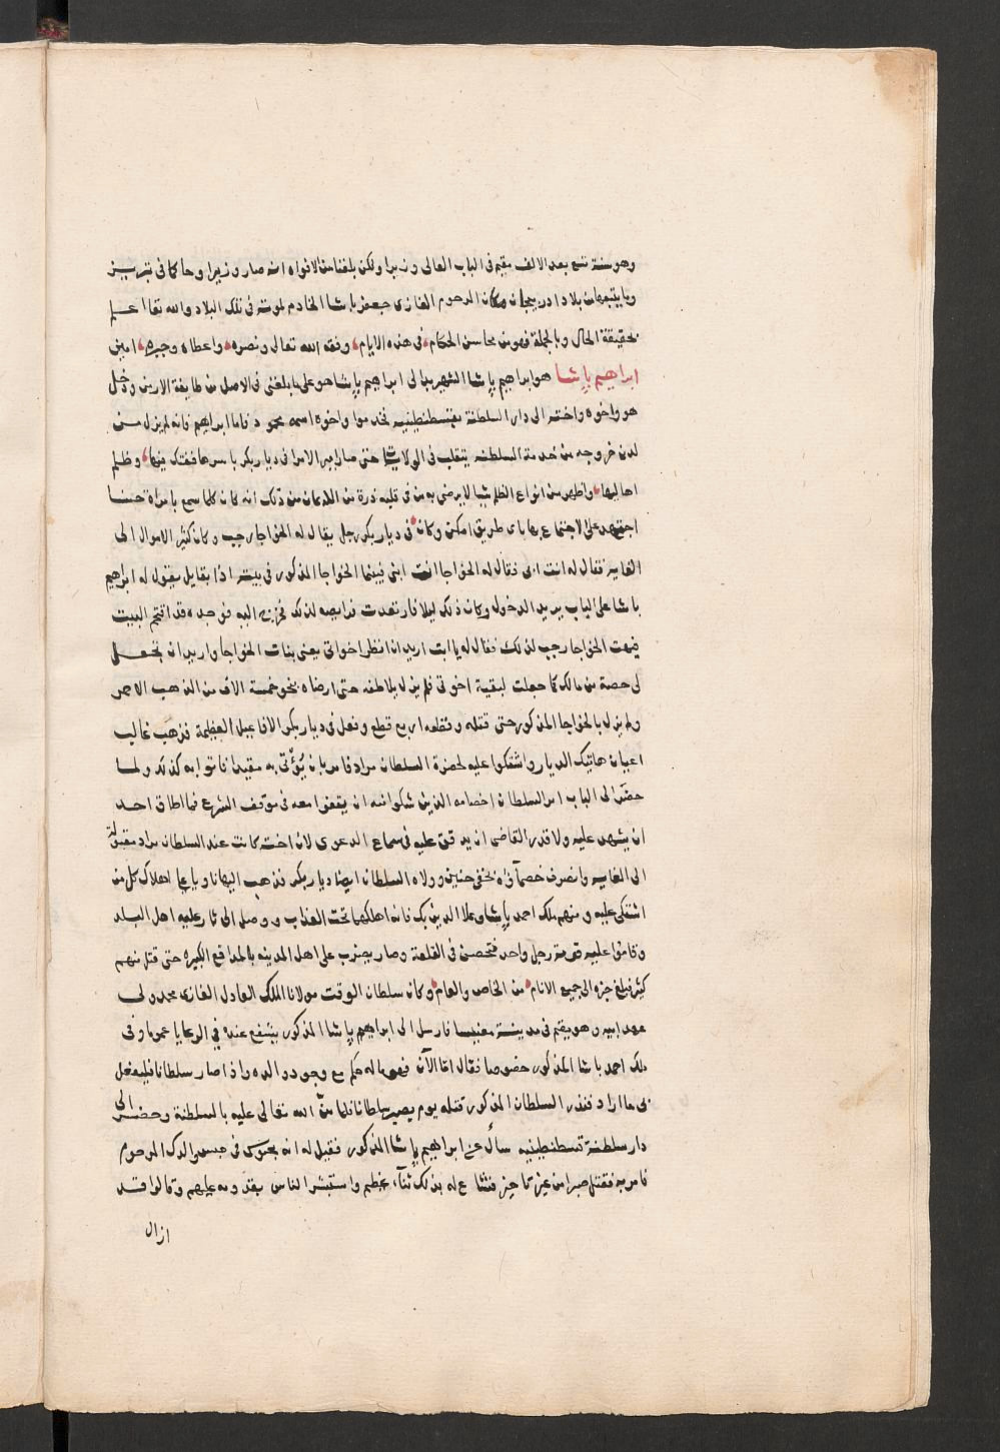 وهو سنة تسع بعد الالف مقيم فى الباب العالى وزيرا ولكن بلغنا من الافواه انه صار وزيرا وحاكما فى تبريز
وما يتبعها من بلاد ادربيجان مكان المرحوم الغازى جعفر باشا الخادم لموته فى تلك البلاد والله تعالى اعلم
بحقيقة الحال وبالجملة فهو من محاسن الحكام فى هذه الايام وفقه الله تعالى ونصره واعطاه وجبره امين
ابراهيم باشا هو ابراهيم باشا الشهير بدالى ابراهيم باشا هو على ما بلغنى فى الاصل من طايفة الارمن ودخل
هو واخوه واخته الى دار السلطنة بقسطنطينيه فخدموا واخوه اسمه محمود فاما ابراهيم فانه لم يزل من
لدن خروجه من خدمة السلطنه يتقلب فى الولايات حتى صار امير الامرا فى ديار بكر باسرها ففتك فيها وظلم
اهاليها واظهر من انواع الظلم شيا لا يرضى به من فى قلبه ذرة من الايمان من ذلك انه كان كلما سمع بامراة حسنا
اجتهد على الاجتماع بها باى طريق امكن وكان فى ديار بكر رجل يقال له الخواجا رجب وكان كثير الاموال الى
الغايه فقال له انت ابى فقال له الخواجا انت ابنى فبينما الخواجا المذكور فى بيته اذا بقايل يقول له ابراهيم
باشا على الباب يريد الدخول وكان ذلك ليلا فارتعدت فرايصه لذلك فخرج اليه فوجده قد اقتحم البيت
فبهت الخواجا رجب لذلك فقال له يا ابت اريد ان انظر اخواتى يعنى بنات الخواجا واريد ان تجعل
لى حصة من مالك كما جعلت لبقية اخوتى فلم يزل يلاطفه حتى ارضاه بنحو خمسة الاف من الذهب الاحمر
ولم يزل بالخواجا المذكور حتى قتله وقطعه اربع قطع وفعل فى ديار بكر الافاعيل العظيمة فذهب غالب
اعيان هاتيك الديار واشتكوا عليه لحضرة السلطان مراد فامر بان يؤتى به مقيدا فاتوا به كذلك ولما
حضر الى الباب امر السلطان اخصامه الذين شكوا منه ان يقفوا معه فى موقف الشرع فما اطاق احد
ان يشهد عليه ولا قدر القاضى ان يدقق عليه فى سماع الدعوى لان اخته كانت عند السلطان مراد مقبولة
الى الغايه وانصرف خصماؤه بخفى حنين وولاه السلطان ايضا ديار بكر فذهب اليها ناويا بها اهلاك كل من
اشتكى عليه ومنهم ملك احمد باشا وعلا الدين بك فانه اهلكهما تحت العذاب ووصل الى ثار عليه اهل البلد
وقاموا عليه قومة رجل واحد فتحصن فى القلعة وصار يضرب على اهل المدينه بالمدافع الكبيره حتى قتل منهم
كثير فبلغ خبره الى جميع الانام من الخاص والعام وكان سلطان الوقت مولانا الملك العادل الغازى محمد ولى
عهد ابيه وهو يقيم فى مدينة مغنيسا فارسل الى ابراهيم باشا المذكور يتشفع عنده فى الرعايا عموما وفى
ملك احمد باشا المذكور خصوصا فقال اما الآن فهو ما له حكم مع وجود والده واذا صار سلطانا فليفعل
بى ما اراد فنذر السلطان المذكور قتله يوم يصير سلطانا فلما من الله تعالى عليه بالسلطنة وحضر الى
دار سلطنة قسطنطينيه سأل عن ابراهيم باشا المذكور فقيل له انه محبوس فى حبس والدك المرحوم
فامر به فقتل صبرا من غير تاخير فنشا له بذلك ثناء عظيم واستبشر الناس بقدومه عليهم وقالوا قد
ازال